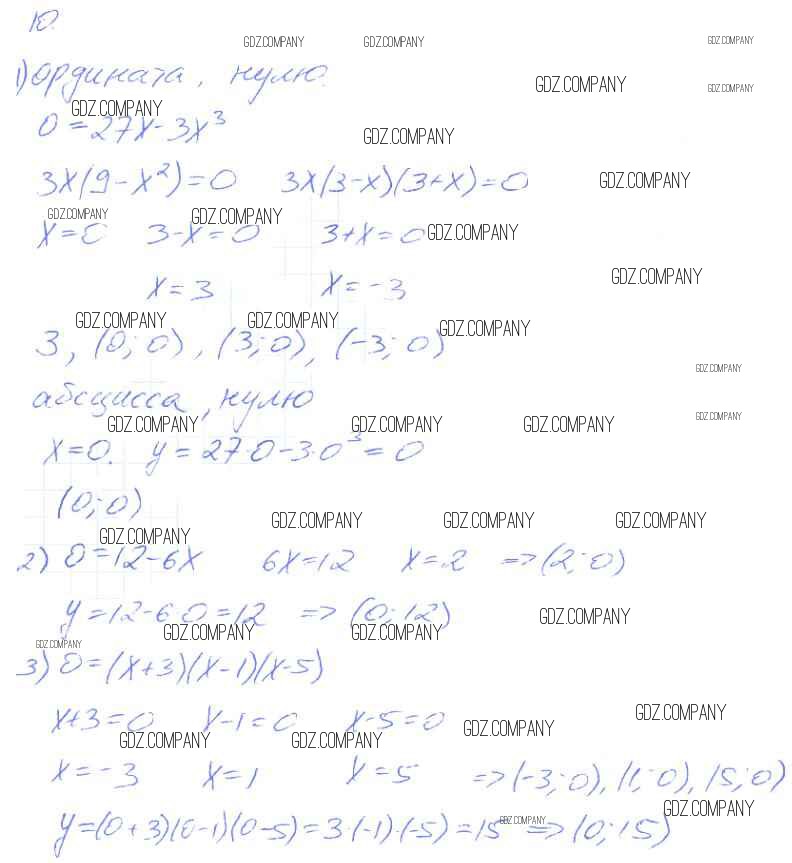 10.
GDZ.COMPANY GDZ.COMPANY GDZ.COMPANY
1) ордината, нулю. GDZ.COMPANY GDZ.COMPANY
GDZ.COMPANY
0 = 27x - 3x³ GDZ.COMPANY
3x(9 - x²) = 0 3x(3-x)(3+x) = 0 GDZ.COMPANY
GDZ.COMPANY GDZ.COMPANY
x = 0 3 - x = 0 3 + x = 0 GDZ.COMPANY
x = 3 x = -3 GDZ.COMPANY
GDZ.COMPANY GDZ.COMPANY GDZ.COMPANY
3, (0; 0), (3; 0), (-3; 0)
GDZ.COMPANY
абсцисса, нулю
GDZ.COMPANY GDZ.COMPANY GDZ.COMPANY GDZ.COMPANY
x = 0. y = 27·0 - 3·0³ = 0
(0; 0)
GDZ.COMPANY GDZ.COMPANY GDZ.COMPANY
GDZ.COMPANY
2) 0 = 12 - 6x 6x = 12 x = 2 => (2; 0)
y = 12 - 6·0 = 12 => (0; 12) GDZ.COMPANY
GDZ.COMPANY GDZ.COMPANY GDZ.COMPANY
3) 0 = (x+3)(x-1)(x-5)
x+3 = 0 x-1 = 0 x-5 = 0 GDZ.COMPANY GDZ.COMPANY
GDZ.COMPANY GDZ.COMPANY
x = -3 x = 1 x = 5 => (-3; 0), (1; 0), (5; 0)
GDZ.COMPANY
y = (0+3)(0-1)(0-5) = 3·(-1)·(-5) = 15 GDZ.COMPANY => (0; 15)